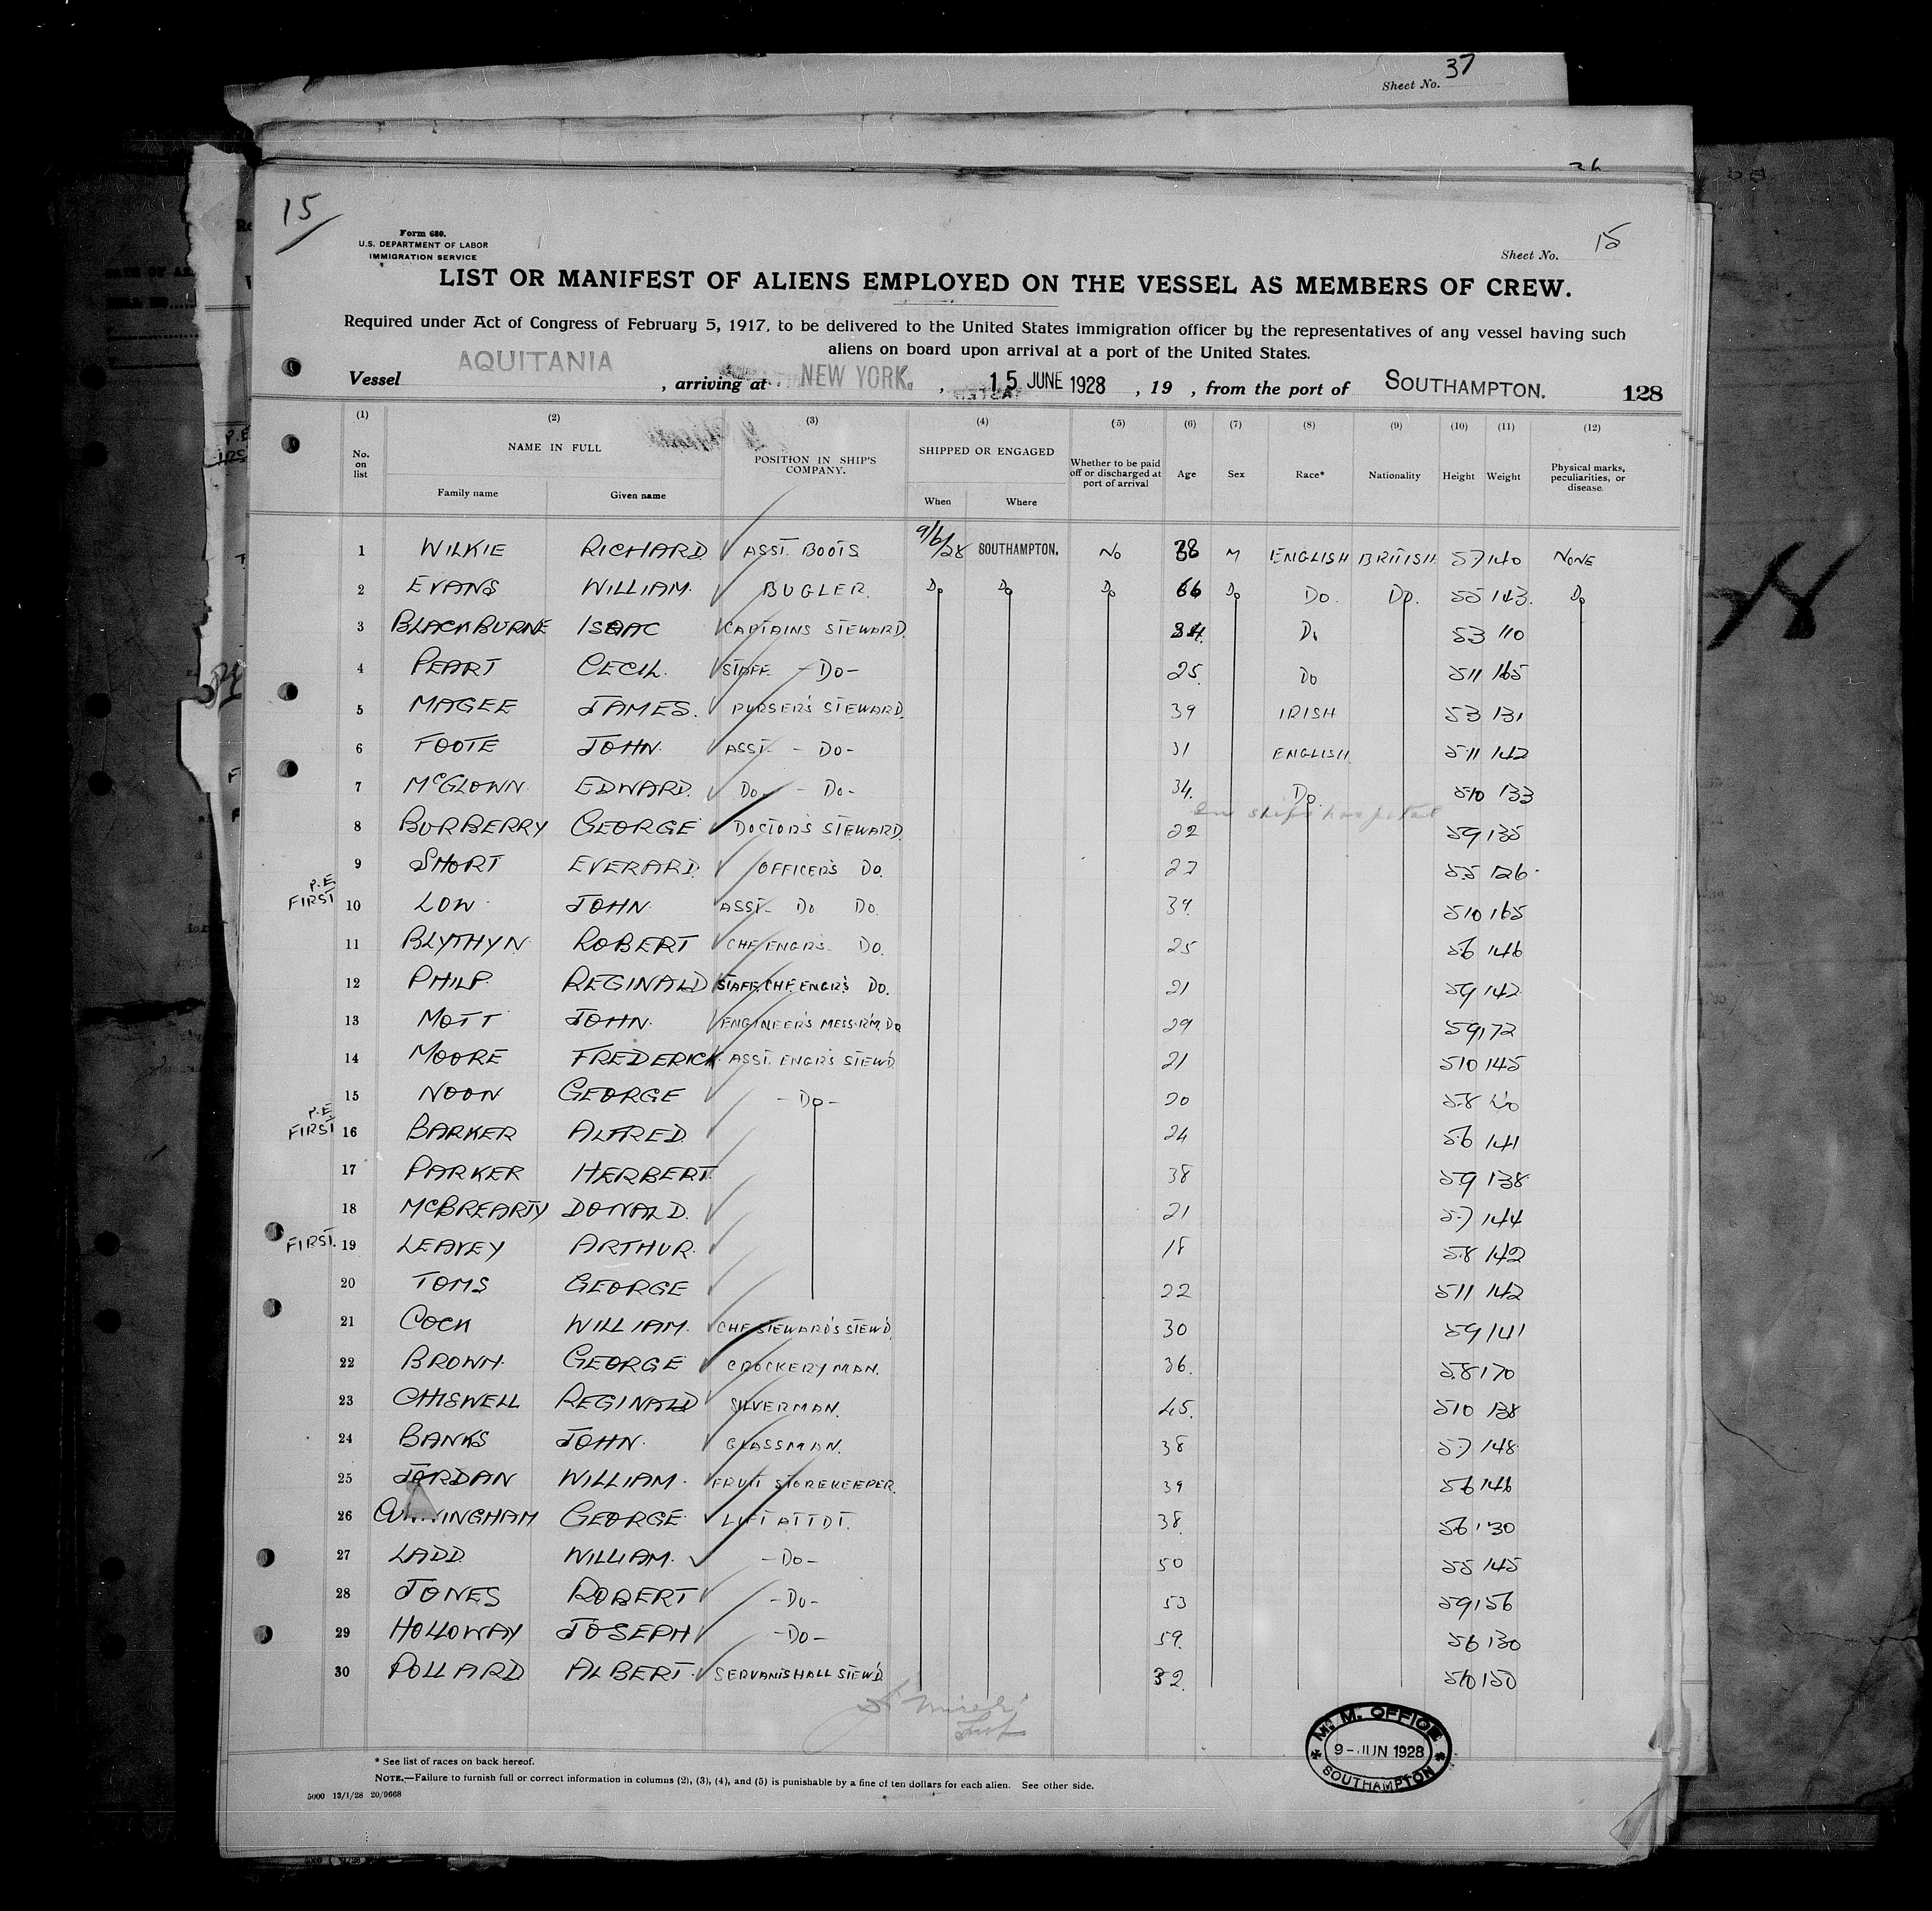 Sheet No. 37
15
Form 680.
U.S. DEPARTMENT OF LABOR
IMMIGRATION SERVICE
Sheet No. 15
LIST OR MANIFEST OF ALIENS EMPLOYED ON THE VESSEL AS MEMBERS OF CREW.
Required under Act of Congress of February 5, 1917, to be delivered to the United States immigration officer by the representatives of any vessel having such
aliens on board upon arrival at a port of the United States.
Vessel AQUITANIA, arriving at NEW YORK, 15 JUNE 1928, 19 , from the port of SOUTHAMPTON. 128
(1) (2) (3) (4) (5) (6) (7) (8) (9) (10) (11) (12)
No. on list NAME IN FULL Family name Given name POSITION IN SHIP'S COMPANY. SHIPPED OR ENGAGED When Where Whether to be paid off or discharged at port of arrival Age Sex Race* Nationality Height Weight Physical marks, peculiarities, or disease.
1 WILKIE RICHARD ASST. BOOTS 9/6/28 SOUTHAMPTON. NO 38 M ENGLISH BRITISH 57 140 NONE
2 EVANS WILLIAM. BUGLER. Do Do Do 66 Do Do. Do. 55 143. Do
3 BLACKBURNE ISAAC CAPTAINS STEWARD. 34. Do 53 110
4 PEART CECIL. STAFF. -Do- 25. Do 511 165
5 MAGEE JAMES. PURSER'S STEWARD. 39 IRISH 53 131
6 FOOTE JOHN. ASST. -Do- 31 ENGLISH 511 142
7 McGLOWN EDWARD. Do. -Do- 34. Do. 510 133
in ships hospital
8 BURBERRY GEORGE DOCTOR'S STEWARD. 22 59 135
9 SHORT EVERARD. OFFICER'S DO. 27 55 126
P.E. FIRST 10 LOW JOHN. ASST. DO DO. 39. 510 165
11 BLYTHYN ROBERT CHF. ENGR'S. DO. 25 56 146
12 PHILP. REGINALD STAFF. CHF. ENGR'S DO. 21 59 142
13 MOTT JOHN. ENGINEER'S MESS. R'M. DO 29 59 172
14 MOORE FREDERICK. ASST. ENGR'S STEW'D 21 510 145
15 NOON GEORGE -Do- 20 58
P.E. FIRST 16 BARKER ALFRED. 24 56 141
17 PARKER HERBERT. 38 59 138
18 McBREARTY DONALD. 21 57 144
FIRST. 19 LEAVEY ARTHUR. 18 58 142
20 TOMS GEORGE 22 511 142
21 COCK WILLIAM. CHF. STEWARD'S STEW'D. 30 59 141
22 BROWN. GEORGE CROCKERYMAN. 36. 58 170
23 CHISWELL REGINALD SILVERMAN. 45. 510 138
24 BANKS JOHN. GLASSMAN. 38 57 148
25 JORDAN WILLIAM. FRUIT STOREKEEPER. 39 56 146
26 CUNNINGHAM GEORGE LIFT ATTDT. 38. 56 130
27 LADD WILLIAM. -Do- 50 55 145
28 JONES ROBERT -Do- 53 59 156
29 HOLLOWAY JOSEPH -Do- 59. 56 130
30 POLLARD ALBERT. SERVANTS HALL STEW'D 32. 510 150
* See list of races on back hereof.
NOTE.—Failure to furnish full or correct information in columns (2), (3), (4), and (5) is punishable by a fine of ten dollars for each alien. See other side.
5000 13/1/28 20/9668
M. M. OFFICE
9 - JUN 1928
SOUTHAMPTON